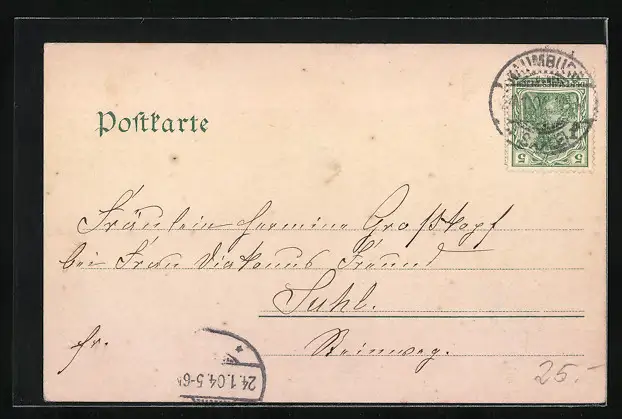 Postkarte
NAUMBURG
(SAALE)
5 5
Fräulein Hermine Großkopf
bei Frau Diakonus Freund
Suhl.
fr.
Steinweg.
24.1.04.5-6
25.-